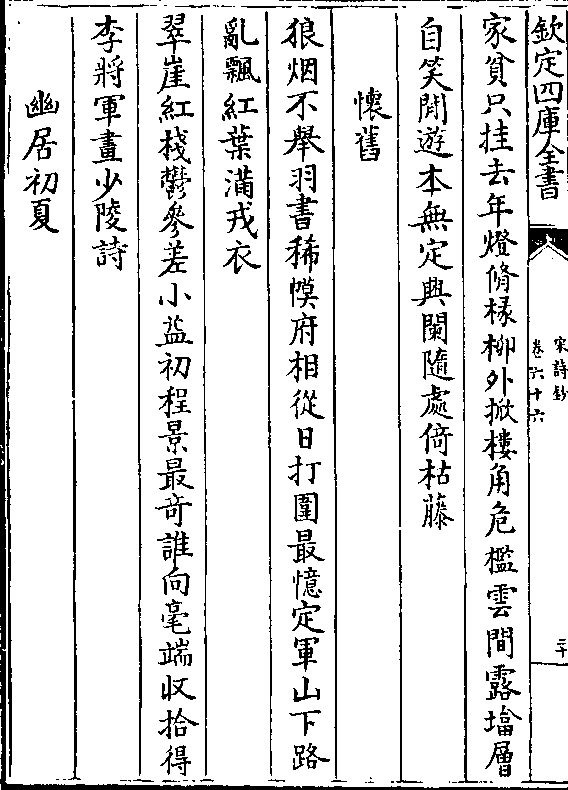 欽定四庫全書
宋詩鈔
卷六十六
三十
家貧只挂去年燈脩椽柳外掀樓角危檻雲間露㙮層
自笑閒遊本無定興闌隨處倚枯藤
懷舊
狼烟不舉羽書稀幙府相從日打圍最憶定軍山下路
亂飄紅葉滿戎衣
翠崖紅棧鬱參差小益初程景最竒誰向毫端收拾得
李將軍畫少陵詩
幽居初夏